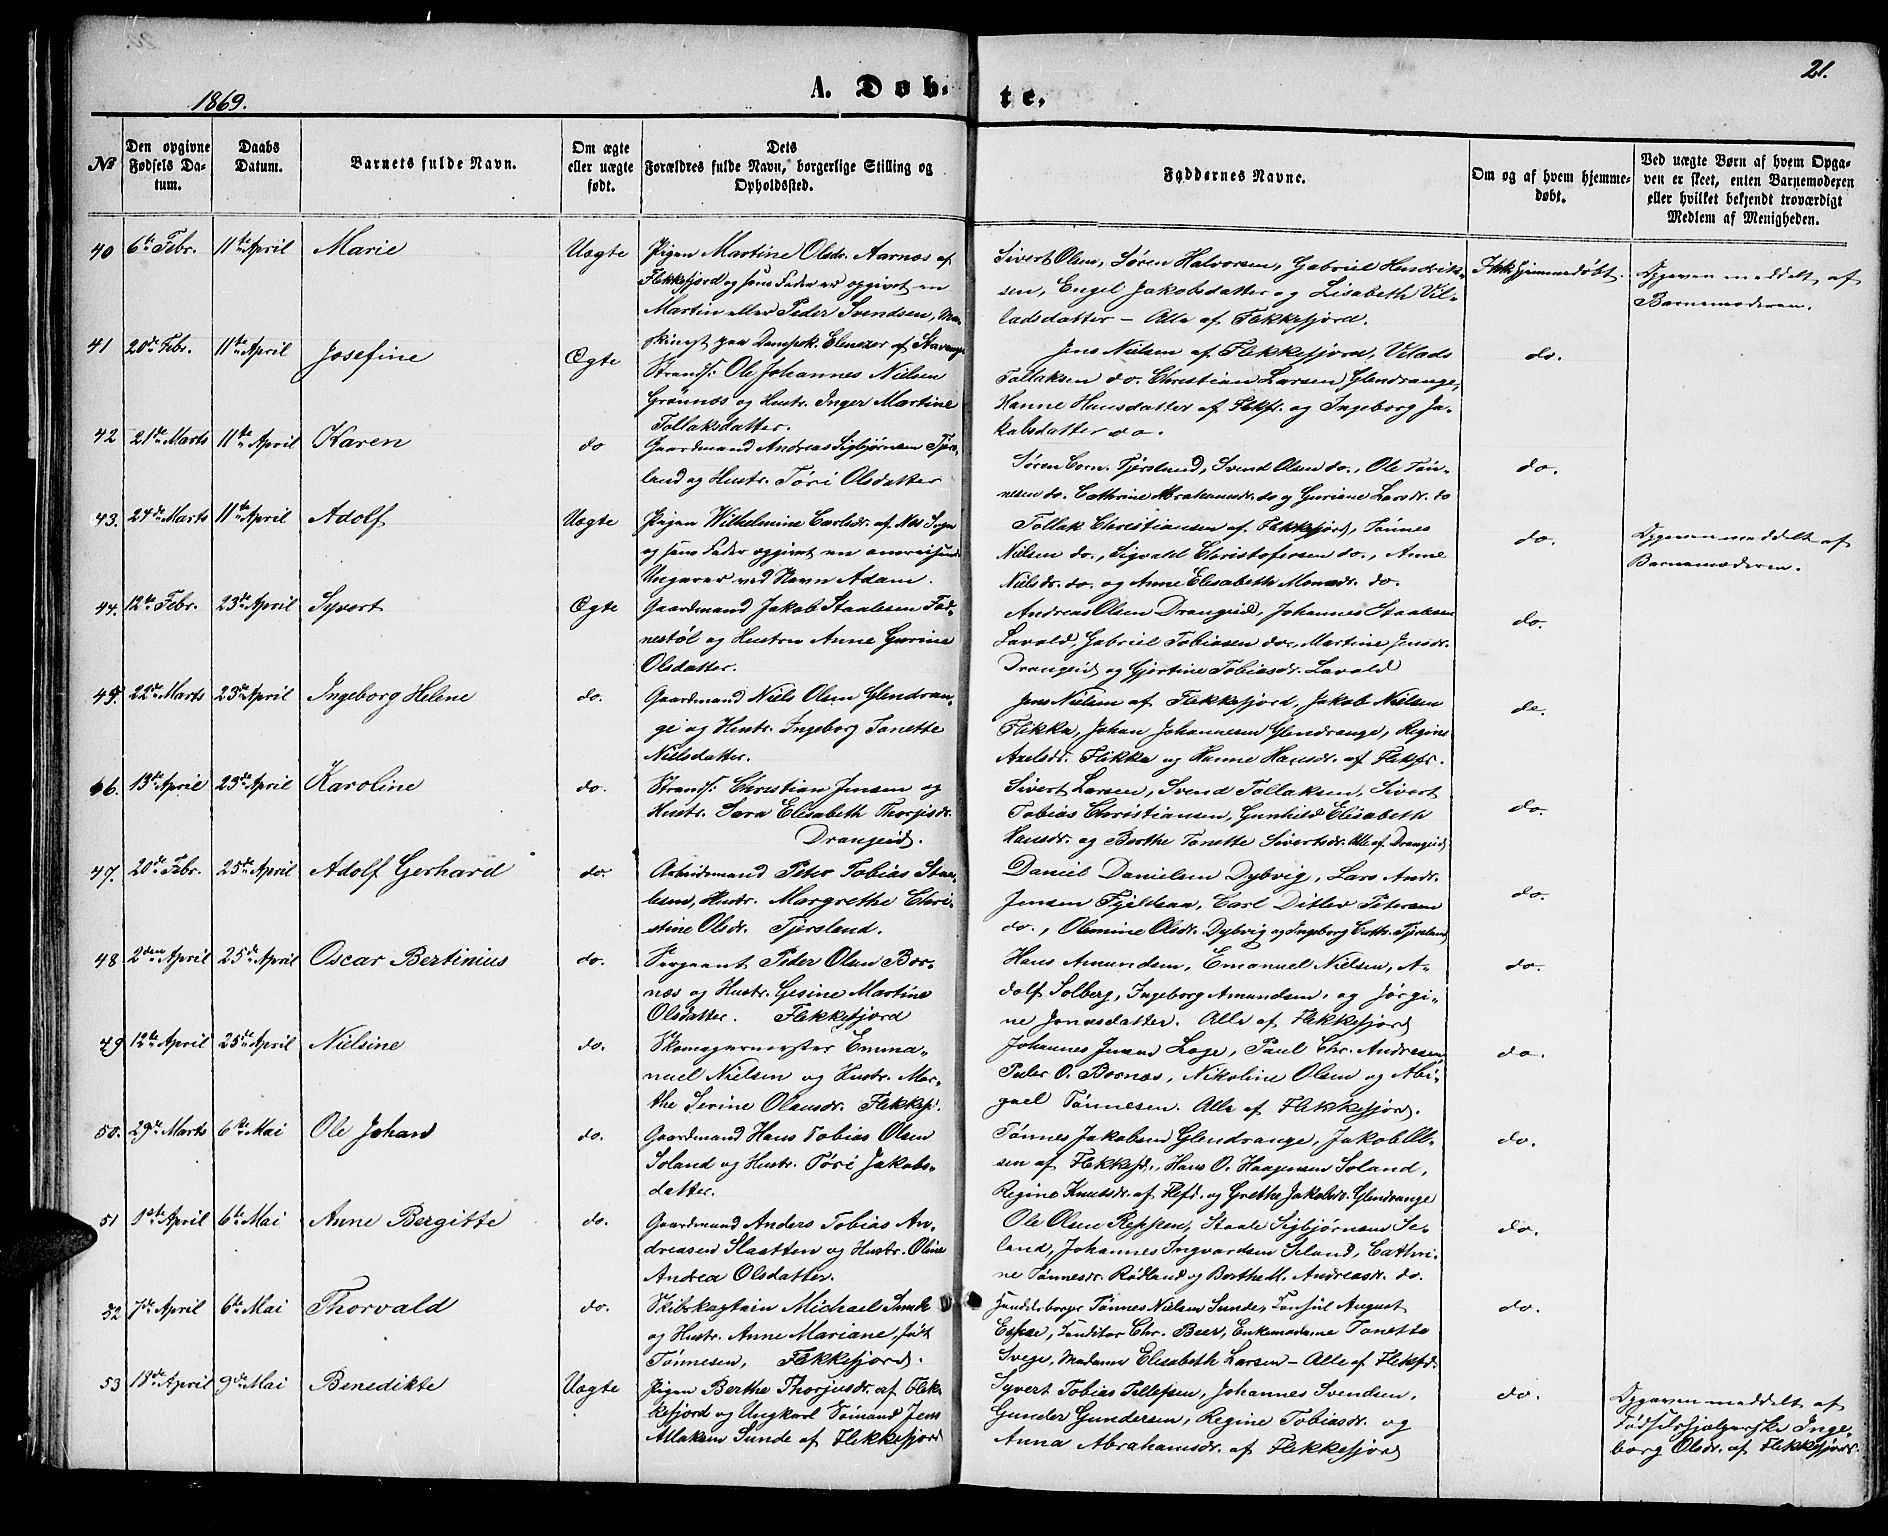 21.
1869.
A. Døb-
te.
No
Den opgivne Fødsels Datum.
Daabs Datum.
Barnets fulde Navn.
Om ægte eller uægte født.
Dets Forældres fulde Navn, borgerlige Stilling og Opholdssted.
Faddernes Navne.
Om og af hvem hjemmedøbt.
Ved uægte Børn af hvem Opgaven er skeet, enten Barnemoderen eller hvilket bekjendt troværdigt Medlem af Menigheden.
40 6te Febr. 11te April Marie Uægte
Pigen Martine Olsdr. Aarnæs af
Flekkefjord og som Fader er opgivet en
Martin eller Peder Svendsen, Ma-
skinist paa Dampsk. Ebenezer af Stavanger
Sivert Olsen, Søren Halvorsen, Gabriel Hendrik-
sen, Engel Jakobsdatter og Lisabeth Vil-
ladsdatter - Alle af Flekkefjord.
Ikke hjemmedøbt.
Opgaven meddelt af
Barnemoderen.
41 20de Febr. 11te April Josefine Ægte
Strands. Ole Johannes Nielsen
Grønnæs og Hustr. Inger Martine
Tollaksdatter.
Jens Nielsen af Flekkefjord, Vilads
Tollaksen do. Christian Larsen Glendrange,
Hanne Hansdatter af Flekfr. og Ingeborg Ja-
kobsdatter do.
do.
42 21de Marts 11te April Karen do
Gaardmand Andreas Sigbjørnsen Tjørs-
land og Hustr. Tøri Olsdatter
Søren Corn. Tjørsland, Svend Olsen do., Ole Tøn-
nesen do. Cathrine Abrahamsdr. do og Guriane Larsdr. do
do.
43. 24de Marts 11te April Adolf Uægte
Pigen Wilhelmine Carlsdr. af Nes Sogn
og som Fader opgivet en omreisende
Ungarer ved Navn Adam.
Tollak Christiansen af Flekkefjord, Tønnes
Nielsen do., Sigvald Christofersen do., Anne
Nielsdr. do. og Anne Elisabeth Monsdr. do.
do.
Opgaven meddelt af
Barnemoderen.
44. 12te Febr. 23de April Syvert Ægte
Gaardmand Jakob Staalesen Fad-
nestøl og Hustru Anne Gurine
Olsdatter.
Andreas Olsen Drangeid, Johannes Staalesen
Lavold, Gabriel Tobiasen do., Martine Jensdr.
Drangeid og Gjertine Tobiasdr. Lavold
do.
45. 22de Marts 23de April Ingeborg Helene do.
Gaardmand Niels Olsen Glendran-
ge og Hustr. Ingeborg Tonette
Nielsdatter.
Jens Nielsen af Flekkefjord, Jakob Nielsen
Flikka, Johan Johannesen Glendrange, Regine
Axelsdr. Flikka og Hanne Hansdr. af Flekfr.
do.
46. 13de April 23de April Karoline do.
Strands. Christian Jensen og
Hustr. Sara Elisabeth Thorjsdr.
Drangeid.
Sivert Larsen, Svend Tollaksen, Sivert
Tobias Christiansen, Gunhild Elisabeth
Hansdr. og Berthe Tonette Sivertsdr. Alle af Drangeid
do.
47. 20de Febr. 25de April Adolf Gerhard do.
Arbeidsmand Peter Tobias Staa-
lesen, Hustr. Margrethe Chri-
stine Olsdr. Tjørsland.
Daniel Danielsen Dybvig, Lars Andr.
Jensen Fjeldsaa, Carl Ditlev Petersen
do., Olemine Olsdr. Dybvig og Ingeborg Cathr. Tjørsland
do.
48 2den April 25de April Oscar Bertinius do.
Sergeant Peder Olsen Bor-
næs og Hustr. Gesine Martine
Olsdatter. Flekkefjord
Hans Amundsen, Emanuel Nielsen, A-
dolf Solberg, Ingeborg Amundsen, og Jørgi-
ne Jonasdatter. Alle af Flekkefjord
do.
49 12te April 25de April Nielsine do.
Skomagermester Emma-
nuel Nielsen og Hustr. Mar-
the Serine Olausdr. Flekkefj.
Johannes Jensen Loge, Paul Chr. Andresen
Peder O. Bornæs, Nikoline Olsen og Abi-
gael Tønnesen. Alle af Flekkefjord.
do.
50. 29de Marts 6te Mai Ole Johan do.
Gaardmand Hans Tobias Olsen
Soland og Hustr. Tøri Jakobs-
datter.
Tønnes Jakobsen Glendrange, Jakob Ol-
sen af Flekkefd., Hans O. Haagensen Soland,
Regine Knudsdr. af Flefd. og Grethe Jakobsdr. Glendrange
do.
51 1ste April 6te Mai Anne Bergitte do.
Gaardmand Anders Tobias An-
dreasen Slaatten og Hustr. Oline
Andrea Olsdatter.
Ole Olsen Reppen, Staale Sigbjørnsen Se-
land, Johannes Ingvardsen Seland, Cathri-
ne Tønnesdr. Rødland og Berthe M. Andreasdr. do.
do.
52 7de April 6te Mai Thorvald do.
Skibskaptain Michael Sunde
og Hustr. Anne Mariane, født
Tønnesen, Flekkefjord.
Handelsborger Tønnes Nielsen Sunde, Konsul August
Espae, Konditor Chr. Beer, Enkemadame Tonette
Svege, Madame Elisabeth Larsen - Alle af Flekfd.
do.
53 13de April 9de Mai Benedikte Uægte
Pigen Berthe Thorjusdr. af Flek-
kefjord og Ungkarl Sømand Jens
Atlaksen Sunde af Flekkefjord
Syvert Tobias Tellefsen, Johannes Svendsen,
Gunder Gundersen, Regine Tobiasdr. og
Anna Abrahamsdr. af Flekkefjord
do.
Opgaven meddelt af
Fødselshjælperske Inge-
borg Olsdr. af Flekkefjord.